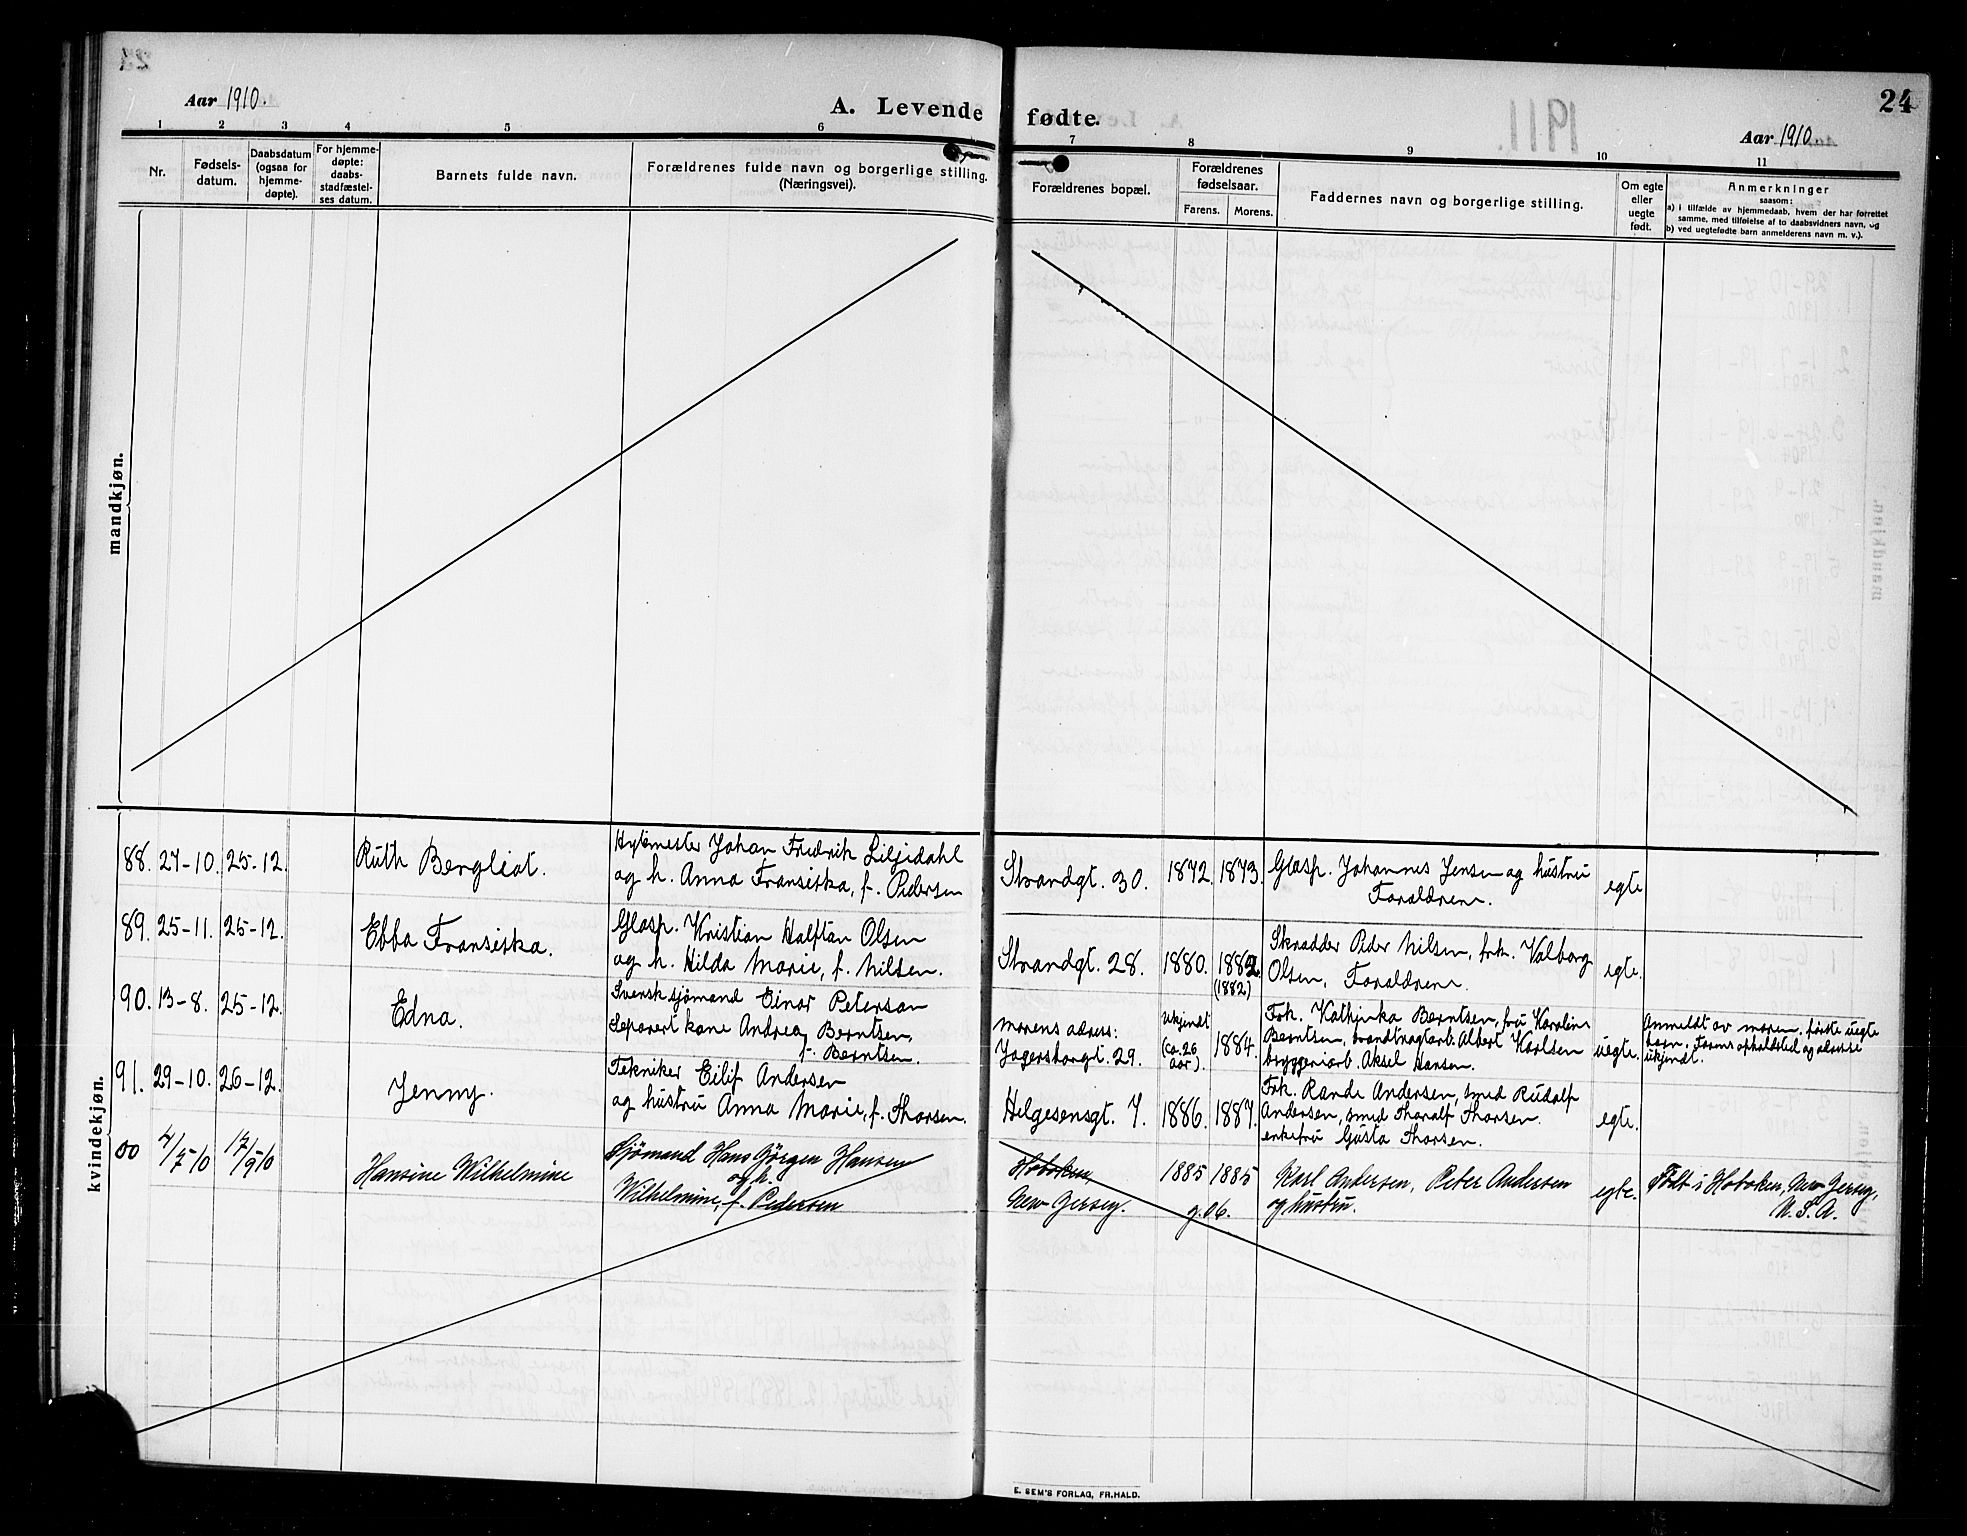 24
Aar 1910.
A. Levende fødte.
Aar 1910.
1911.
1 2 3 4 5 6 7 8 9 10 11
Nr.
Fødsels-
datum.
Daabsdatum
(ogsaa for
hjemme-
døpte).
For hjemme-
døpte:
daabs-
stadfæstel-
ses datum.
Barnets fulde navn.
Forældrenes fulde navn og borgerlige stilling.
(Næringsvei).
Forældrenes bopæl.
Forældrenes
fødselsaar.
Farens. Morens.
Faddernes navn og borgerlige stilling.
Om egte
eller
uegte
født.
Anmerkninger
saasom:
a) i tilfælde av hjemmedaab, hvem der har forrettet
samme, med tilføielse af to daabsvidners navn, og
b) ved uegtefødte barn anmelderens navn m. v.).
mandkjøn.
kvindekjøn.
88. 27-10. 25-12. Ruth Bergliot.
Johan Fredrik Liljidahl
og h. Anna Fransiska, f. Pedersen
Strandgt. 30. 1872. 1873.
Glasp. Johannes Jensen og hustru
Forældrene.
egte
89. 25-11. 25-12. Ebba Fransiska.
Glasp. Kristian Halftan Olsen
og h. Hilda Marie, f. Nilsen.
Strandgt. 28. 1880. 1882.
(1882)
Skrædder Peder Nilsen, frk. Valborg
Olsen, Forældrene.
egte.
90. 13-8. 25-12. Edna.
Svensk sjømand Einar Peterson
Separert kone Andrea Berntsen,
f. Berntsen.
Morens adress:
Jagersborgt. 29.
Ukjendt
(ca. 26
aar).
1884.
Frk. Kathinka Berntsen, fru Karoline
Berntsen, Albert Karlsen
bryggeriarb. Aksel Hansen.
uegte.
Anmeldt av moren. første uegte
barn. Farens opholdsted og adresse
ukjendt.
91. 29-10. 26-12. Jenny.
Tekniker Eilif Andersen
og hustru Anna Marie, f. Thorsen.
Helgesensgt. 7. 1886. 1887.
Frk. Rande Andersen, smed Rudolf
Andersen, smed Thoralf Thorsen
enkefru Gusta Thorsen.
egte.
00 4/7-10 17/9-10 Hansine Wilhelmine
Sjømand Hans Jörgen Hansen
og h.
Wilhelmine, f. Pedersen
Hoboken,
New Jersey.
1885 1885
g. 06.
Karl Andersen, Peter Andersen
og hustru.
egte.
Født i Hoboken, New Jersey,
U. S. A.
E. SEM'S FORLAG, FR.HALD.